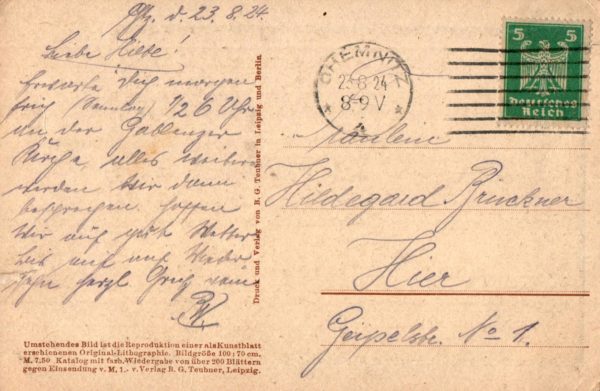 Chz. d. 23.8.24.
Liebe Hilde!
Erwarte Dich morgen
früh (Sonntag) 1/2 6 Uhr
an der Gablenzer
Kirche, alles weitere
werden wir dann
besprechen. Hoffen
wir auf gut Wetter
bis auf auf Wieder
sehn herzl. Gruß vom
Druck und Verlag von B. G. Teubner in Leipzig und Berlin.
Umstehendes Bild ist die Reproduktion einer als Kunstblatt
erschienenen Original-Lithographie. Bildgröße 100:70 cm.
M. 7,50 Katalog mit farb. Wiedergabe von über 200 Blättern
gegen Einsendung v. M. 1.- v. Verlag B. G. Teubner, Leipzig.
CHEMNITZ
23.8.24
8-9V
5 5
Deutsches
Reich
Fräulein
Hildegard Bruckner
Hier
Geipelstr. No 1.